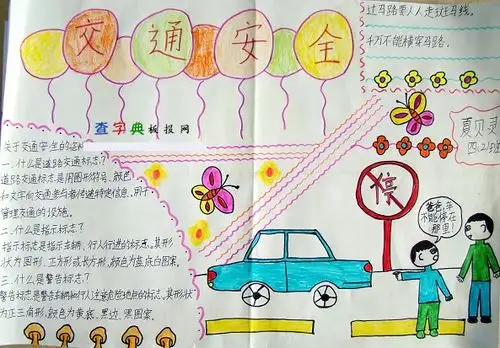 交通安全
过马路要人人走斑马线。
千万不能横穿马路。
查字典板报网
夏贝
四.2)班
关于交通安全的
一.什么是道路交通标志?
道路交通标志是用图形符号、颜色
和文字向交通参与者传递特定信息,用于
管理交通的设施。
二.什么是指示标志?
指示标志是指示车辆、行人行进的标志。其形
状为圆形、正方形或长方形,颜色为蓝底白图案。
三.什么是警告标志?
警告标志是警告车辆和行人注意危险地点的标志。其形状
为正三角形,颜色为黄底、黑边、黑图案。
停
爸爸,车
不能停在
那里!